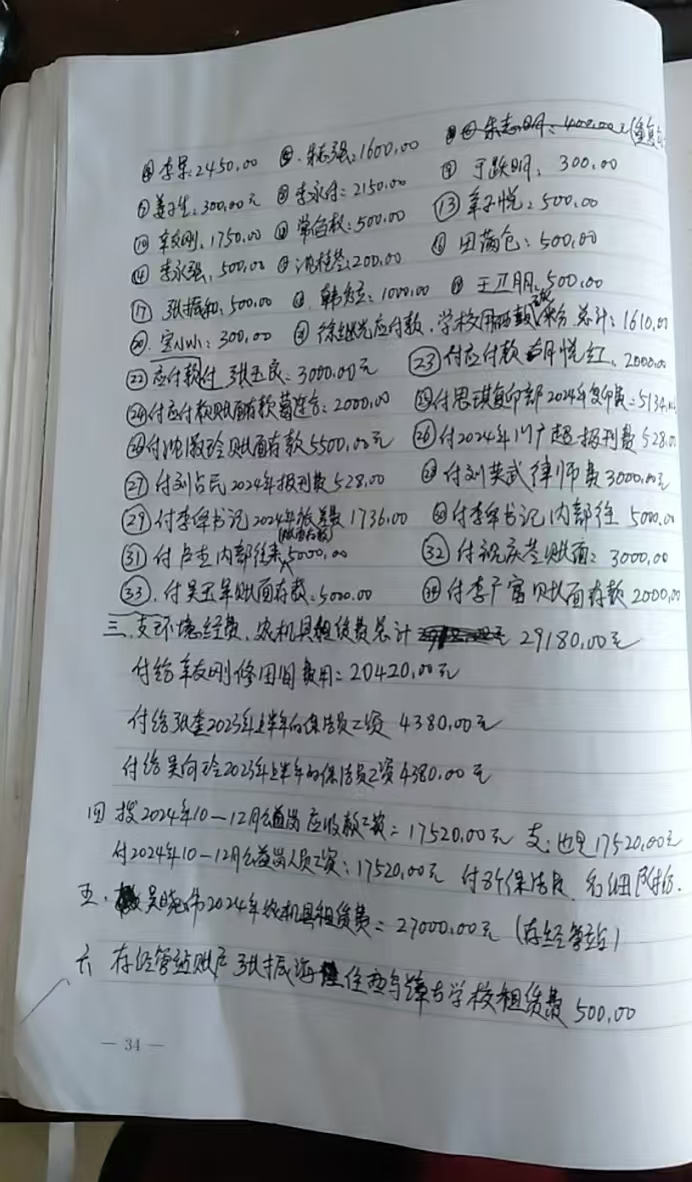 李军:2450.00 朱志强:1600.00 朱志明:400.00
姜子生:300.00元 李永付:2150.00 于跃明:300.00
1750.00 常伯权:500.00 ⑬ 辛子悦:500.00
⑭ 李永强:500.00 200.00 田满仓:500.00
⑰ 张振和:500.00 韩 1000.00 王卫朋:500.00
⑳ 300.00 徐继光应付款,学校用 总计:1610.00
㉒ 应付款付 张玉良:3000.00元 ㉓ 付应付款 胡悦红:2000.00
㉔ 付应付款账面存款葛连 2000.00 付思琪复印部2024年复印费:5134
付 账面存款5500.00元 ㉖ 付2024年 报刊费528.00
㉗ 付刘占民2024年报刊费528.00 付刘英武律师费3000.00元
㉙ 付李军书记2024年 1736.00 付李军书记内部往 5000.00
(账面存款)
㉛ 付卢 内部往来5000.00 ㉜ 付祝庆 账面:3000.00
㉝ 付吴玉军账面存款:5000.00 ㉞ 付李广富账面存款2000.00
三、支环境经费,农机具租赁费总计 29180.00元
付给辛友刚修田间费用:20420.00元
付给张奎2023年上半年的保洁员工资 4380.00元
付给吴向玲2023年上半年的保洁员工资4380.00元
四 拨2024年10—12月公益岗应收款工资:17520.00元 支:也是17520.00元
付2024年10—12月公益岗人员工资:17520.00元 付8个保洁员
五、吴晓伟2024年农机具租赁费:27000.00元(存经管站)
六 存经管站账户张振海住西 学校租赁费500.00
— 34 —